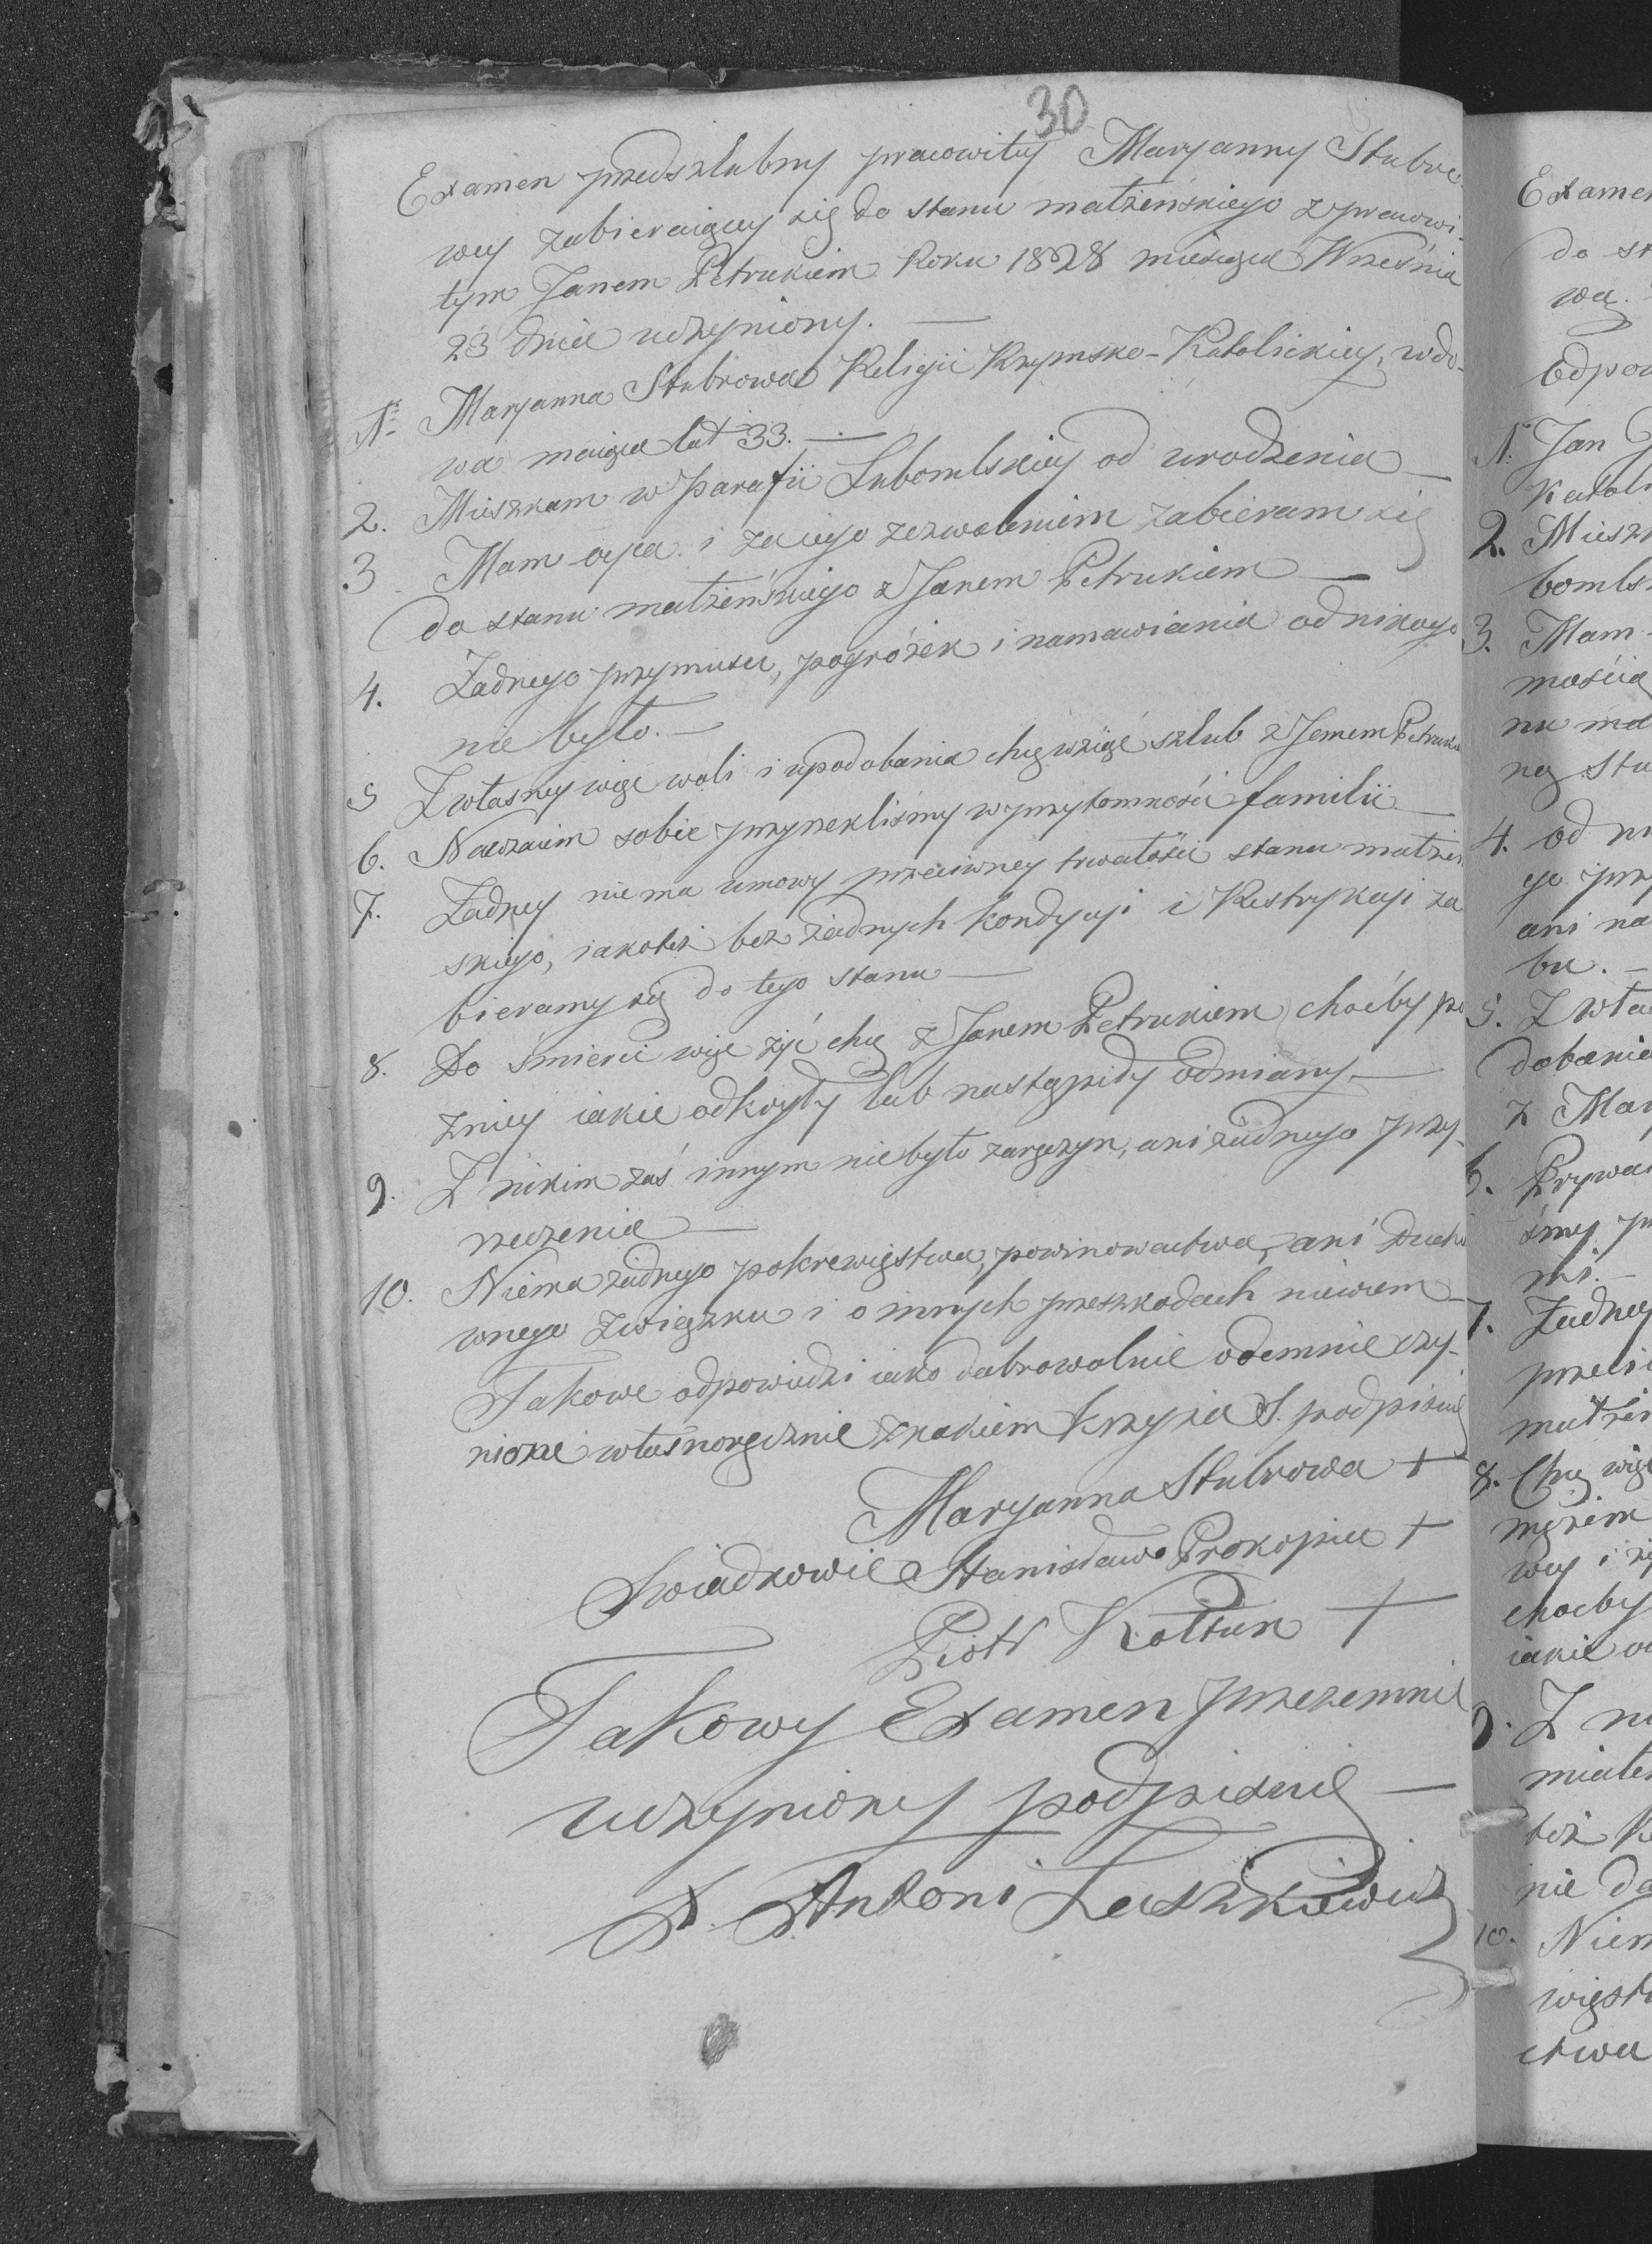 30
Examen przedszlubny pracowitey Maryanny Stubro
wey zabieraiącey się do stanu małżeńskiego z pracowi-
tym Janem Petrukiem Roku 1828 miesiąca Wrzesnia
23 dnia uczyniony. —
1. Maryanna Stubrowa Religii Rzymsko-Katolickiey, wdo-
wa maiąca lat 33. —
2. Mieszkam w Parafii Lubomlskiey od urodzenia —
3 Mam oyca i za iego zezwoleniem zabieram się
do stanu małżeńskiego z Janem Petrukiem —
4. Żadnego przymusu, pogróżek i namawiania od nikogo
nie było. —
5 Z własney więc woli i upodobania chcę wziąć szlub z Janem Petruki
6. Nawzaiem sobie przyrzekliśmy w przytomności familii —
7. Żadney nie ma umowy przeciwney trwałości stanu małżeń
skiego, iakoteż bez żadnych kondycyi i Restrykcyi za
bieramy się do tego stanu —
8. Do śmierci więc żyć chcę z Janem Petrukiem choćby po
zniey iakie odkryły lub nastąpiły odmiany —
9. Z nikim zaś innym nie było zaręczyn, ani żadnego przy-
rzeczenia —
10. Niema żadnego pokrewięstwa, powinowactwa, ani Ducho
wnego Związku i o innych przeszkodach niewiem —
Takowe odpowiedzi iako dobrowolnie odemnie czy-
nione własnoręcznie znakiem krzyża S. podpisuię
Maryanna Stubrowa +
Swiadkowie Stanisław Prokopiuk +
Piotr Kołtun +
Takowy Examen przezemnie
uczyniony podpisuię —
X. Antoni Laszkiewicz
Examen
do st
wą.
odpow
1. Jan
Katoli
2. Mieszk
bomls
3. Mam
mością
nu ma
ną Stu
4. od ni
go prz
ani na
bu. —
5. Z wła
dobania
z Mar
6. Prywa
śmy p
mi. —
7. Żadney
przeci
małżeń
8. Chcę więc
mężem
wey i ży
choćby
iakie od
9. Z ni
miałe
też k
nie da
10. Niem
więst
ctwa